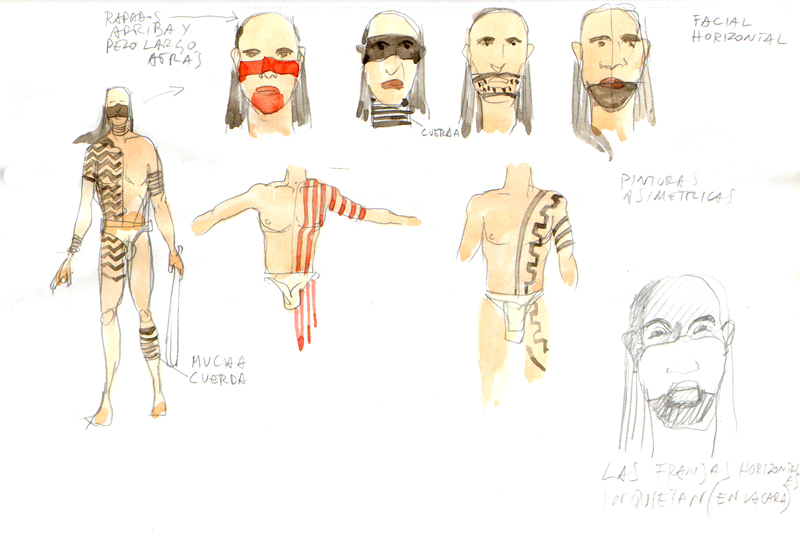 RAPADOS
ARRIBA Y
PELO LARGO
ATRÁS
FACIAL
HORIZONTAL
CUERDA
PINTURAS
ASIMETRICAS
MUCHA
CUERDA
LAS FRANJAS HORIZONTALES
INQUIETAN (EN LA CARA)